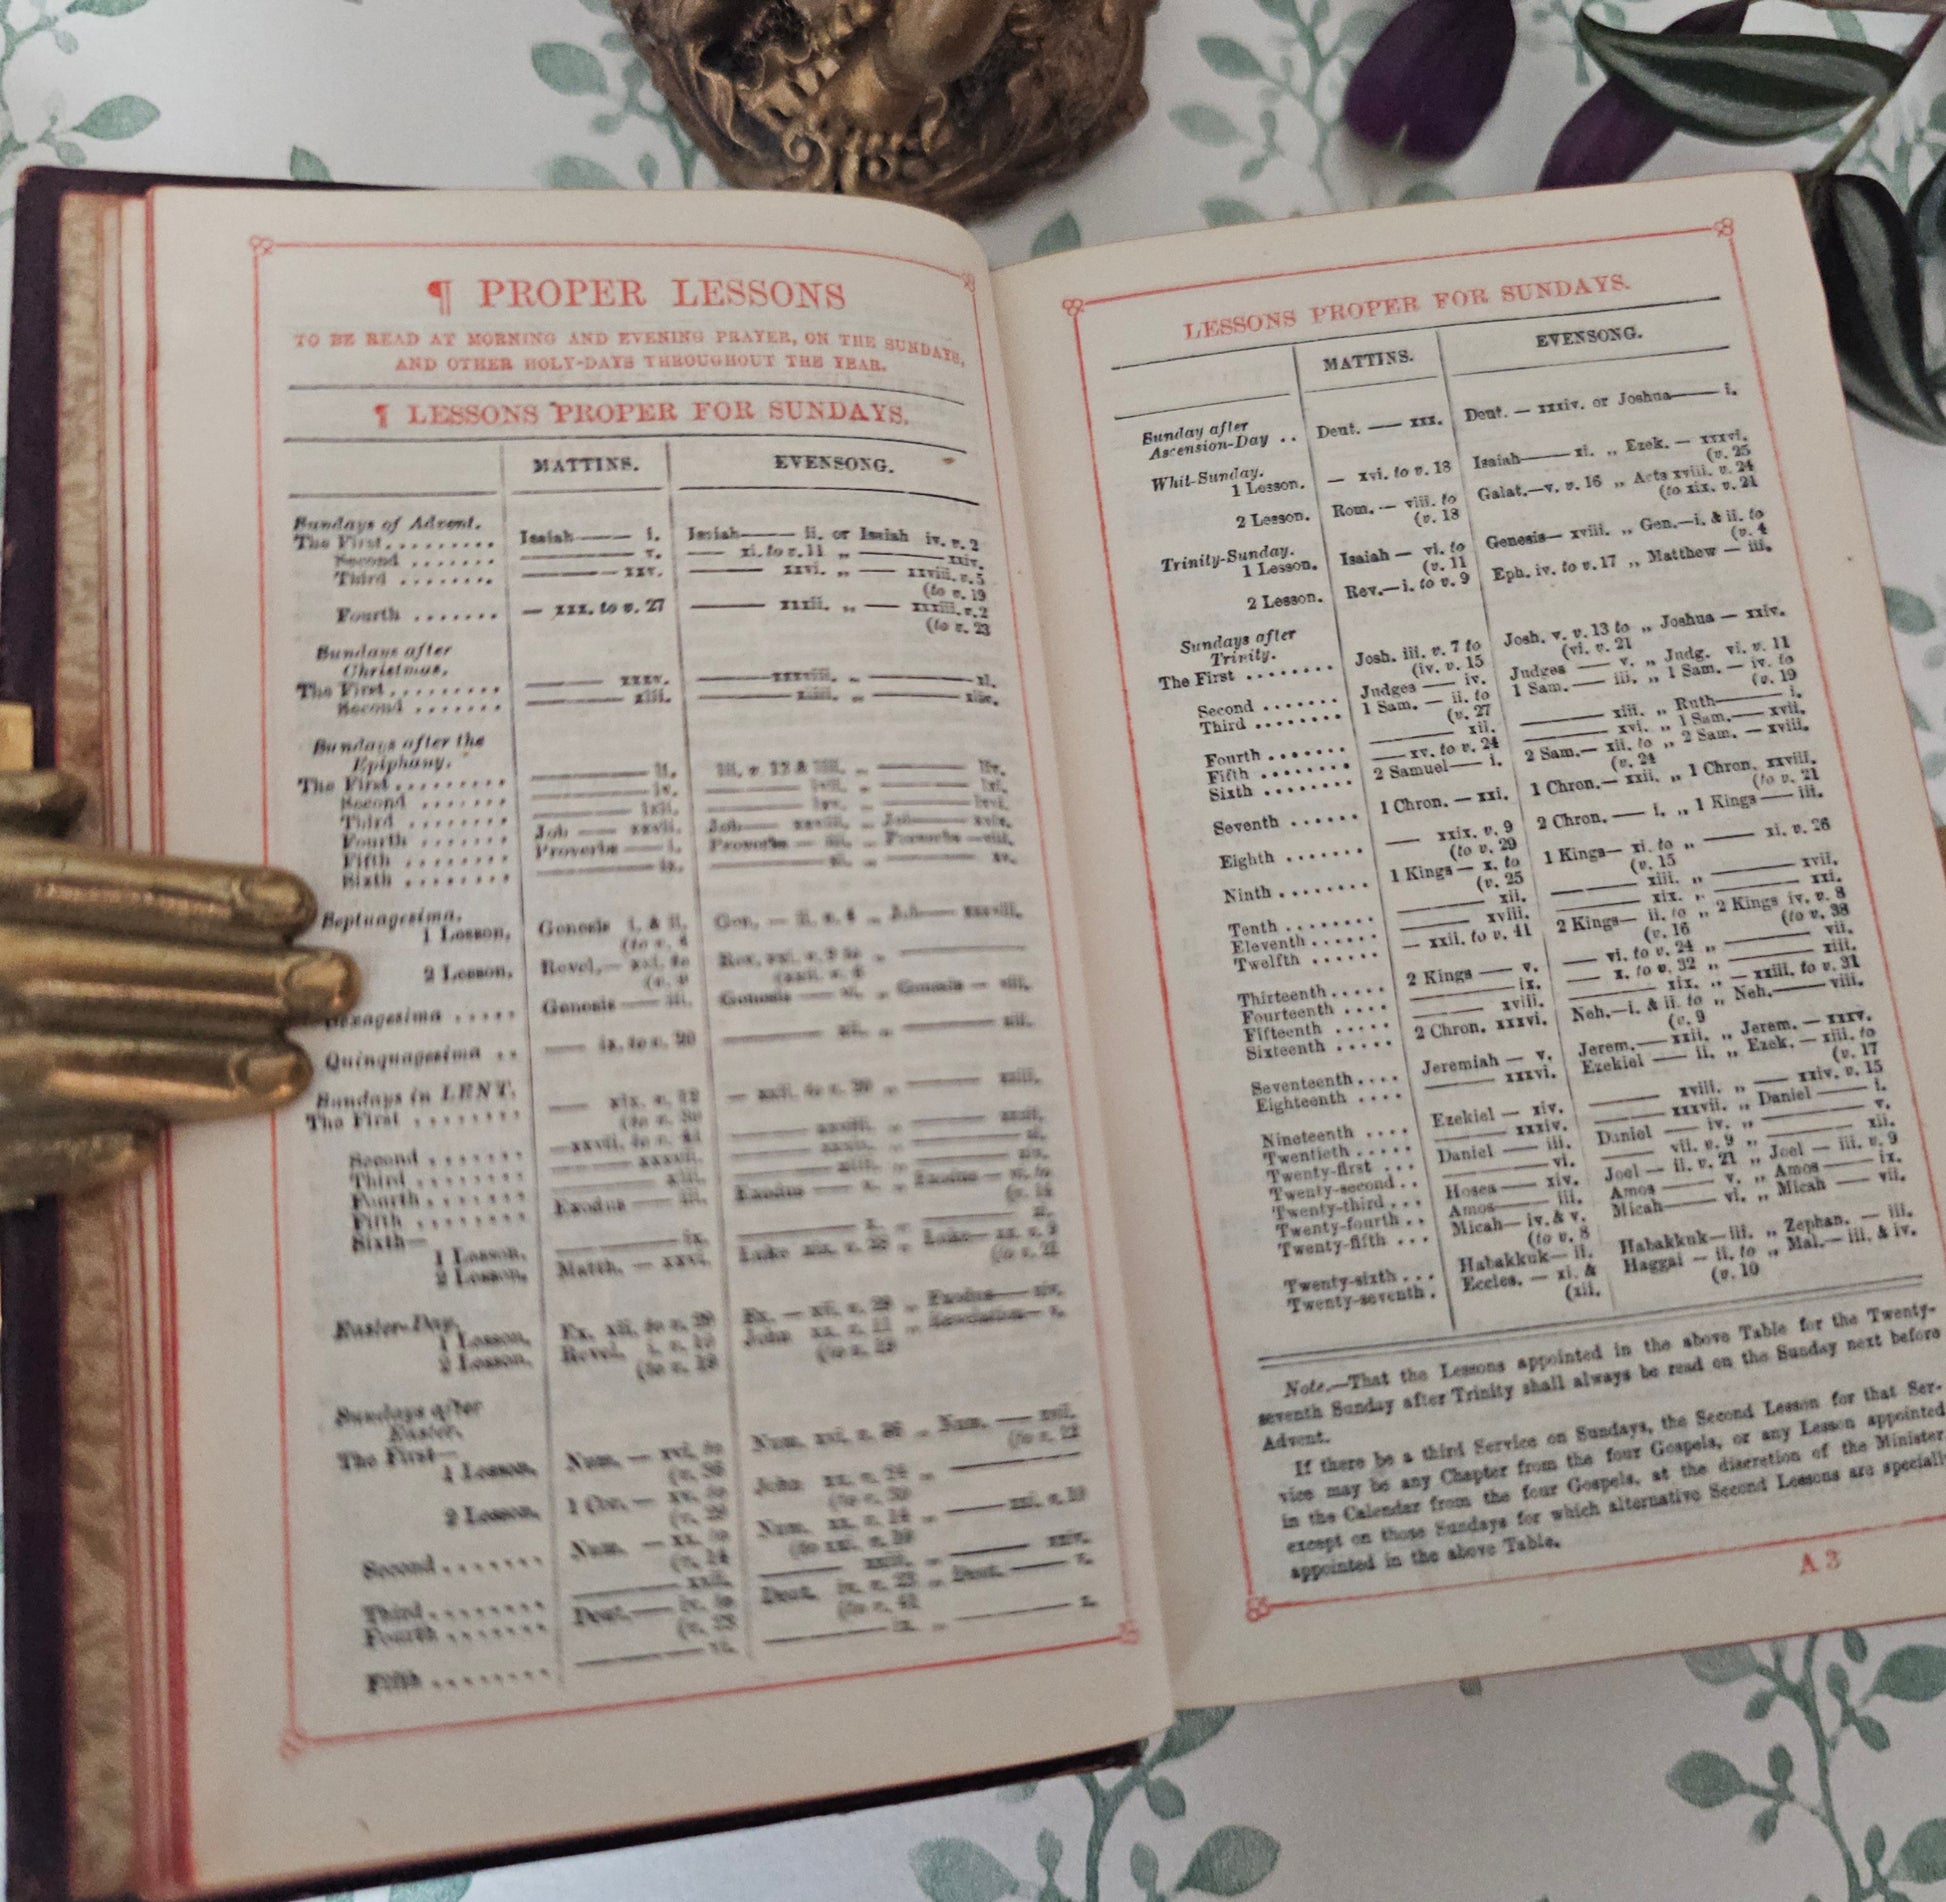 ¶ PROPER LESSONS
TO BE READ AT MORNING AND EVENING PRAYER, ON THE SUNDAYS,
AND OTHER HOLY-DAYS THROUGHOUT THE YEAR.
¶ LESSONS PROPER FOR SUNDAYS.
MATTINS. EVENSONG.
Sundays of Advent.
The First........ Isaiah—— i. Isaiah—— ii. or Isaiah iv. v. 2
Second ....... —— v. — xi. to v. 11 „ —— xxiv.
Third ....... —— xxv. —— xxvi. „ — xxviii. v. 5
(to v. 19
Fourth ....... — xxx. to v. 27 —— xxxii. „ — xxxiii. v. 2
(to v. 23
Sundays after
Christmas.
The First........ —— xxxv. —— xxxviii. „ —— xl.
Second ....... —— xlii. —— xliii. „ ——
Sundays after the
Epiphany.
The First........
Second .......
Third .......
Fourth ....... Job — xxvii. Job — xxviii. „ Job — xxix.
Fifth ....... Proverbs — i. Proverbs — iii. „ Proverbs — viii.
Sixth ....... —— ix. —— xi. „ —— xv.
Septuagesima.
1 Lesson, Genesis i. & ii. Gen. — ii. v. 4 „ Job — xxxviii.
(to v. 4
2 Lesson, Revel.— xxi. to Rev. xxi. v. 9 to „ ——
(v. 9 (xxii. v. 6
Sexagesima ..... Genesis — iii. Genesis — vi. „ Genesis — viii.
Quinquagesima .. — ix. to v. 20 —— xii. „ —— xiii.
Sundays in LENT.
The First ....... — xix. v. 12 — xxii. to v. 20 „ —— xxiii.
(to v. 30
Second ....... — xxvii. to v. 41
Third .......
Fourth .......
Fifth ....... Exodus — iii. Exodus — v. „ Exodus — vi. to
(v. 14
Sixth—
1 Lesson, —— ix. —— x. „ —— xi.
2 Lesson, Matth. — xxvi. Luke xix. v. 28 „ Luke— xx. v. 9
(to v. 21
Easter-Day.
1 Lesson, Ex. xii. to v. 29 Ex. — xii. v. 29 „ Exodus— xiv.
2 Lesson, Revel. i. v. 10 John xx. v. 11 „ Revelation— v.
(to v. 19 (to v. 19
Sundays after
Easter.
The First—
1 Lesson, Num. — xvi. to Num. xvi. v. 36 „ Num. — xvii.
(v. 36 (to v. 12
2 Lesson, 1 Cor. — xv. to John xx. v. 24 „ ——
(v. 29 (to v. 30
Second ....... Num. — xx. to Num. xx. v. 14 „ —— xxi. v. 10
(v. 14 (to xxi. v. 10
Third ....... —— xxii. —— xxiii. „ —— xxiv.
Fourth ....... Deut.— iv. to Deut. iv. v. 23 „ Deut. — v.
(v. 23 (to v. 41
Fifth ....... —— vi. —— ix. „ —— x.
LESSONS PROPER FOR SUNDAYS.
MATTINS. EVENSONG.
Sunday after
Ascension-Day .. Deut. — xxx. Deut. — xxxiv. or Joshua—— i.
Whit-Sunday.
1 Lesson. — xvi. to v. 18 Isaiah—— xi. „ Ezek. — xxxvi.
(v. 25
2 Lesson. Rom. — viii. to Galat.—v. v. 16 „ Acts xviii. v. 24
(v. 18 (to xix. v. 21
Trinity-Sunday.
1 Lesson. Isaiah — vi. to Genesis— xviii. „ Gen.—i. & ii. to
(v. 11 (v. 4
2 Lesson. Rev.—i. to v. 9 Eph. iv. to v. 17 „ Matthew — iii.
Sundays after
Trinity.
The First ....... Josh. iii. v. 7 to Josh. v. v. 13 to „ Joshua — xxiv.
(iv. v. 15 (vi. v. 21
Second ....... Judges — iv. Judges — v. „ Judg. vi. v. 11
Third ........ 1 Sam. — ii. to 1 Sam. — iii. „ 1 Sam. — iv. to
(v. 27 (v. 19
Fourth ....... —— xii. —— xiii. „ Ruth—— i.
Fifth ........ — xv. to v. 24 —— xvi. „ 1 Sam.— xvii.
Sixth ........ 2 Samuel— i. 2 Sam.— xii. to „ 2 Sam. — xviii.
(v. 24
Seventh ...... 1 Chron. — xxi. 1 Chron.— xxii. „ 1 Chron. xxviii.
(to v. 21
Eighth ....... — xxix. v. 9 2 Chron. — i. „ 1 Kings — iii.
(to v. 29
Ninth ........ 1 Kings — x. to 1 Kings— xi. to „ —— xi. v. 26
(v. 25 (v. 15
Tenth ........ —— xii. —— xiii. „ —— xvii.
Eleventh ...... —— xviii. —— xix. „ —— xxi.
Twelfth ...... — xxii. to v. 41 2 Kings— ii. to „ 2 Kings iv. v. 8
(v. 16 (to v. 38
Thirteenth..... 2 Kings — v. — vi. to v. 24 „ —— vii.
Fourteenth .... —— ix. — x. to v. 32 „ —— xiii.
Fifteenth ..... —— xviii. —— xix. „ — xxiii. to v. 31
Sixteenth ..... 2 Chron. xxxvi. Neh.—i. & ii. to „ Neh.—— viii.
(v. 9
Seventeenth.... Jeremiah — v. Jerem.— xxii. „ Jerem. — xxxv.
Eighteenth .... —— xxxvi. Ezekiel — ii. „ Ezek. — xiii. to
(v. 17
Nineteenth .... Ezekiel — xiv. —— xviii. „ — xxiv. v. 15
Twentieth ..... —— xxxiv. —— xxxvii. „ Daniel — i.
Twenty-first ... Daniel — iii. Daniel — iv. „ —— v.
Twenty-second.. —— vi. — vii. v. 9 „ —— xii.
Twenty-third ... Hosea— xiv. Joel — ii. v. 21 „ Joel — iii. v. 9
Twenty-fourth .. Amos—— iii. Amos —— v. „ Amos —— ix.
Twenty-fifth ... Micah— iv. & v. Micah—— vi. „ Micah — vii.
(to v. 8
Twenty-sixth ... Habakkuk— ii. Habakkuk—iii. „ Zephan. — iii.
Twenty-seventh . Eccles. — xi. & Haggai — ii. to „ Mal.— iii. & iv.
(xii. (v. 10
Note.—That the Lessons appointed in the above Table for the Twenty-
seventh Sunday after Trinity shall always be read on the Sunday next before
Advent.
If there be a third Service on Sundays, the Second Lesson for that Ser-
vice may be any Chapter from the four Gospels, or any Lesson appointed
in the Calendar from the four Gospels, at the discretion of the Minister
except on those Sundays for which alternative Second Lessons are specially
appointed in the above Table.
A 3